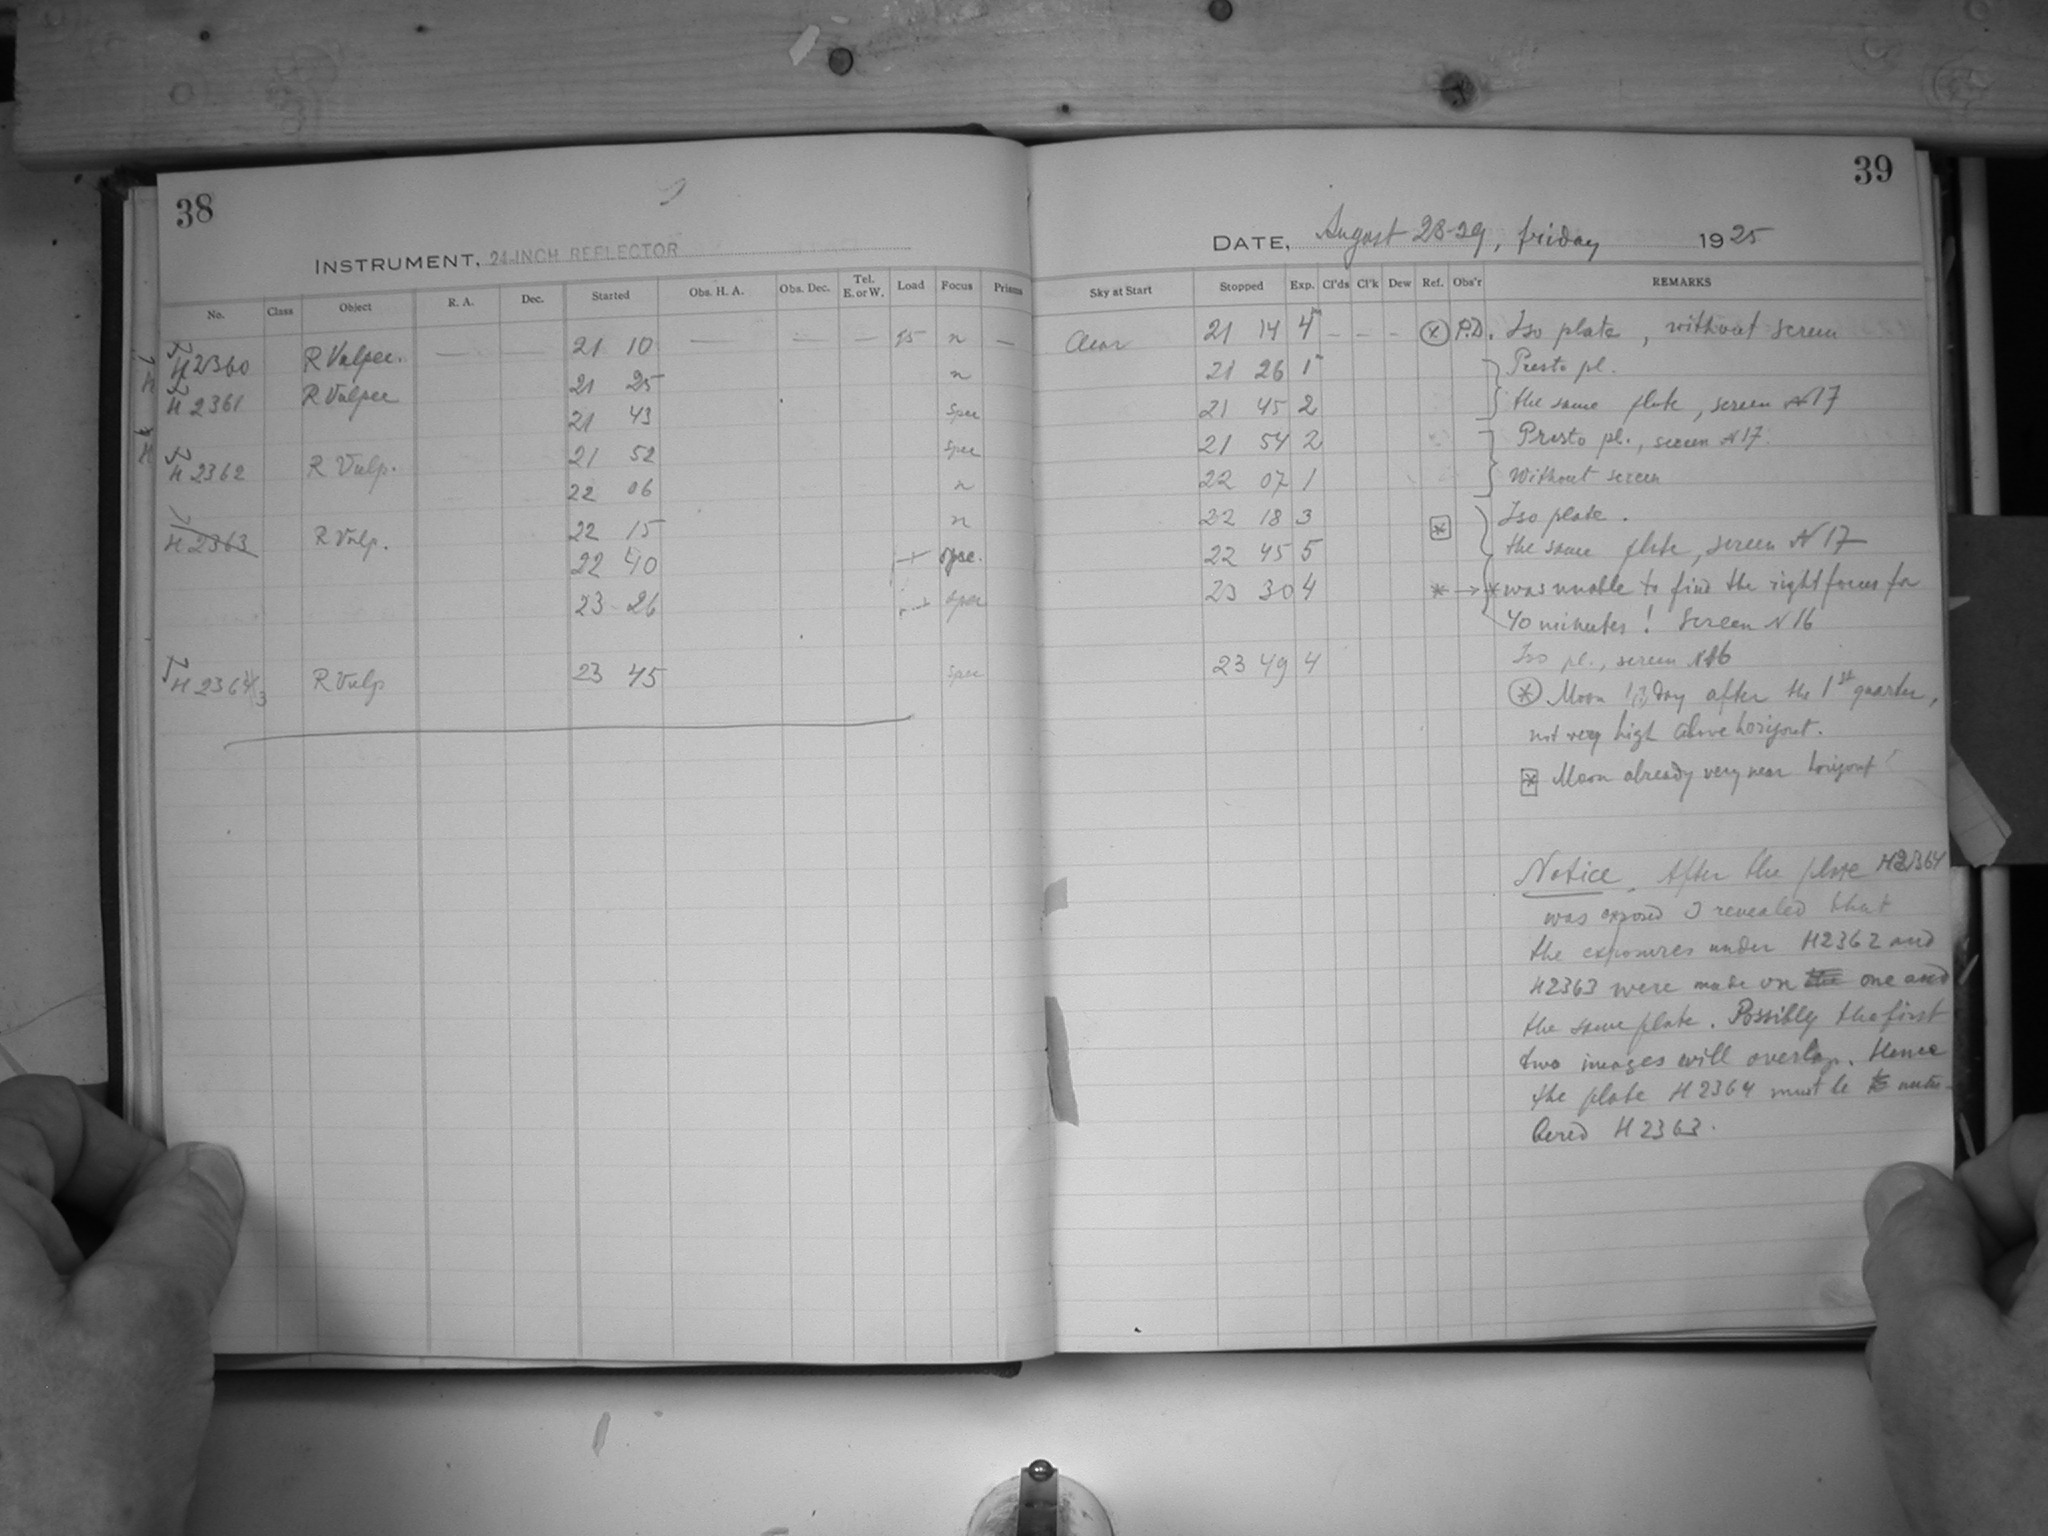 38
INSTRUMENT, 24-INCH REFLECTOR
No. Class Object R. A. Dec. Started Obs. H. A. Obs. Dec. Tel. E. or W. Load Focus Prisms
H 2360 R Vulpec. — — 21 10 — — — 95 n —
H 2361 R Vulpec 21 25 n
21 43 Spec
H 2362 R Vulp. 21 52 Spec
22 06 n
H 2363 R Vulp. 22 15 n
22 40 Spec.
23 26 Spec
H 2364/3 R Vulp 23 45 Spec
39
DATE, August 28-29, friday 1925
Sky at Start Stopped Exp. Cl'ds Cl'k Dew Ref. Obs'r REMARKS
Clear 21 14 4 - - - (*) P.D. Iso plate, without screen
21 26 1 Presto pl.
21 45 2 the same plate, screen N17
21 54 2 Presto pl., screen N17
22 07 1 Without screen
22 18 3 [*] Iso plate.
22 45 5 the same plate, screen N17
23 30 4 * → * was unable to find the right focus for
40 minutes! Screen N16
23 49 4 Iso pl., screen N16
(*) Moon day after the 1st quarter,
not very high above horizont.
[*] Moon already very near horizont!
Notice. After the plate H2364
was exposed I revealed that
the exposures under H2362 and
H2363 were made on the one and
the same plate. Possibly the first
two images will overlap. Hence
the plate H2364 must be num-
bered H2363.